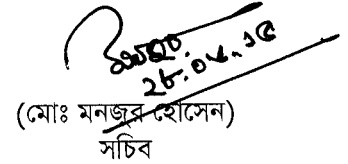 ২৮.০৮.১৫
(মোঃ মনজুর হোসেন)
সচিব